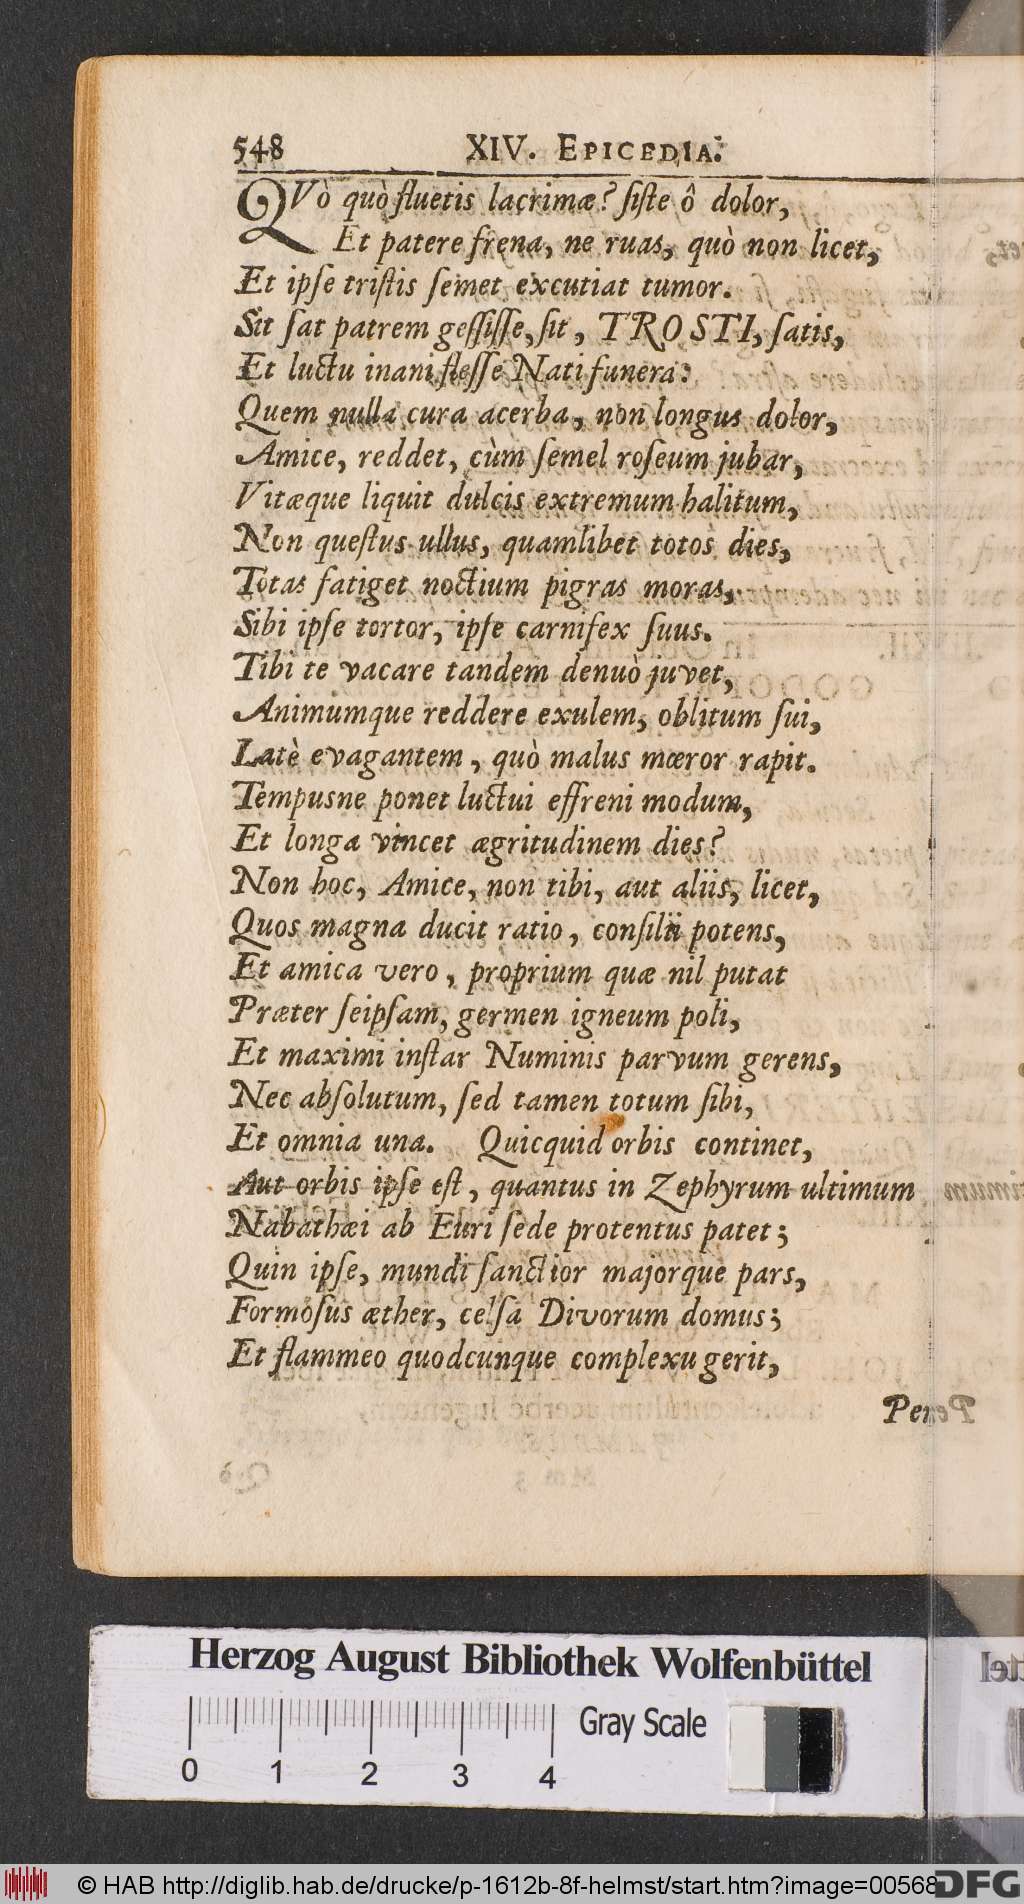 548 XIV. EPICEDIA.
QVò quò fluetis lacrimæ? siste ô dolor,
Et patere frena, ne ruas, quò non licet,
Et ipse tristis semet excutiat tumor.
Sit sat patrem gessisse, sit, TROSTI, satis,
Et luctu inani flesse Nati funera:
Quem nulla cura acerba, non longus dolor,
Amice, reddet, cùm semel roseum jubar,
Vitæque liquit dulcis extremum halitum,
Non questus ullus, quamlibet totos dies,
Totas fatiget noctium pigras moras,
Sibi ipse tortor, ipse carnifex suus.
Tibi te vacare tandem denuò juvet,
Animumque reddere exulem, oblitum sui,
Latè evagantem, quò malus mœror rapit.
Tempusne ponet luctui effreni modum,
Et longa vincet ægritudinem dies?
Non hoc, Amice, non tibi, aut aliis, licet,
Quos magna ducit ratio, consilii potens,
Et amica vero, proprium quæ nil putat
Præter seipsam, germen igneum poli,
Et maximi instar Numinis parvum gerens,
Nec absolutum, sed tamen totum sibi,
Et omnia una. Quicquid orbis continet,
Aut orbis ipse est, quantus in Zephyrum ultimum
Nabathæi ab Euri sede protentus patet;
Quin ipse, mundi sanctior majorque pars,
Formosus æther, celsa Divorum domus;
Et flammeo quodcunque complexu gerit,
Per-
Herzog August Bibliothek Wolfenbüttel
Gray Scale
0 1 2 3 4
© HAB http://diglib.hab.de/drucke/p-1612b-8f-helmst/start.htm?image=00568
DFG